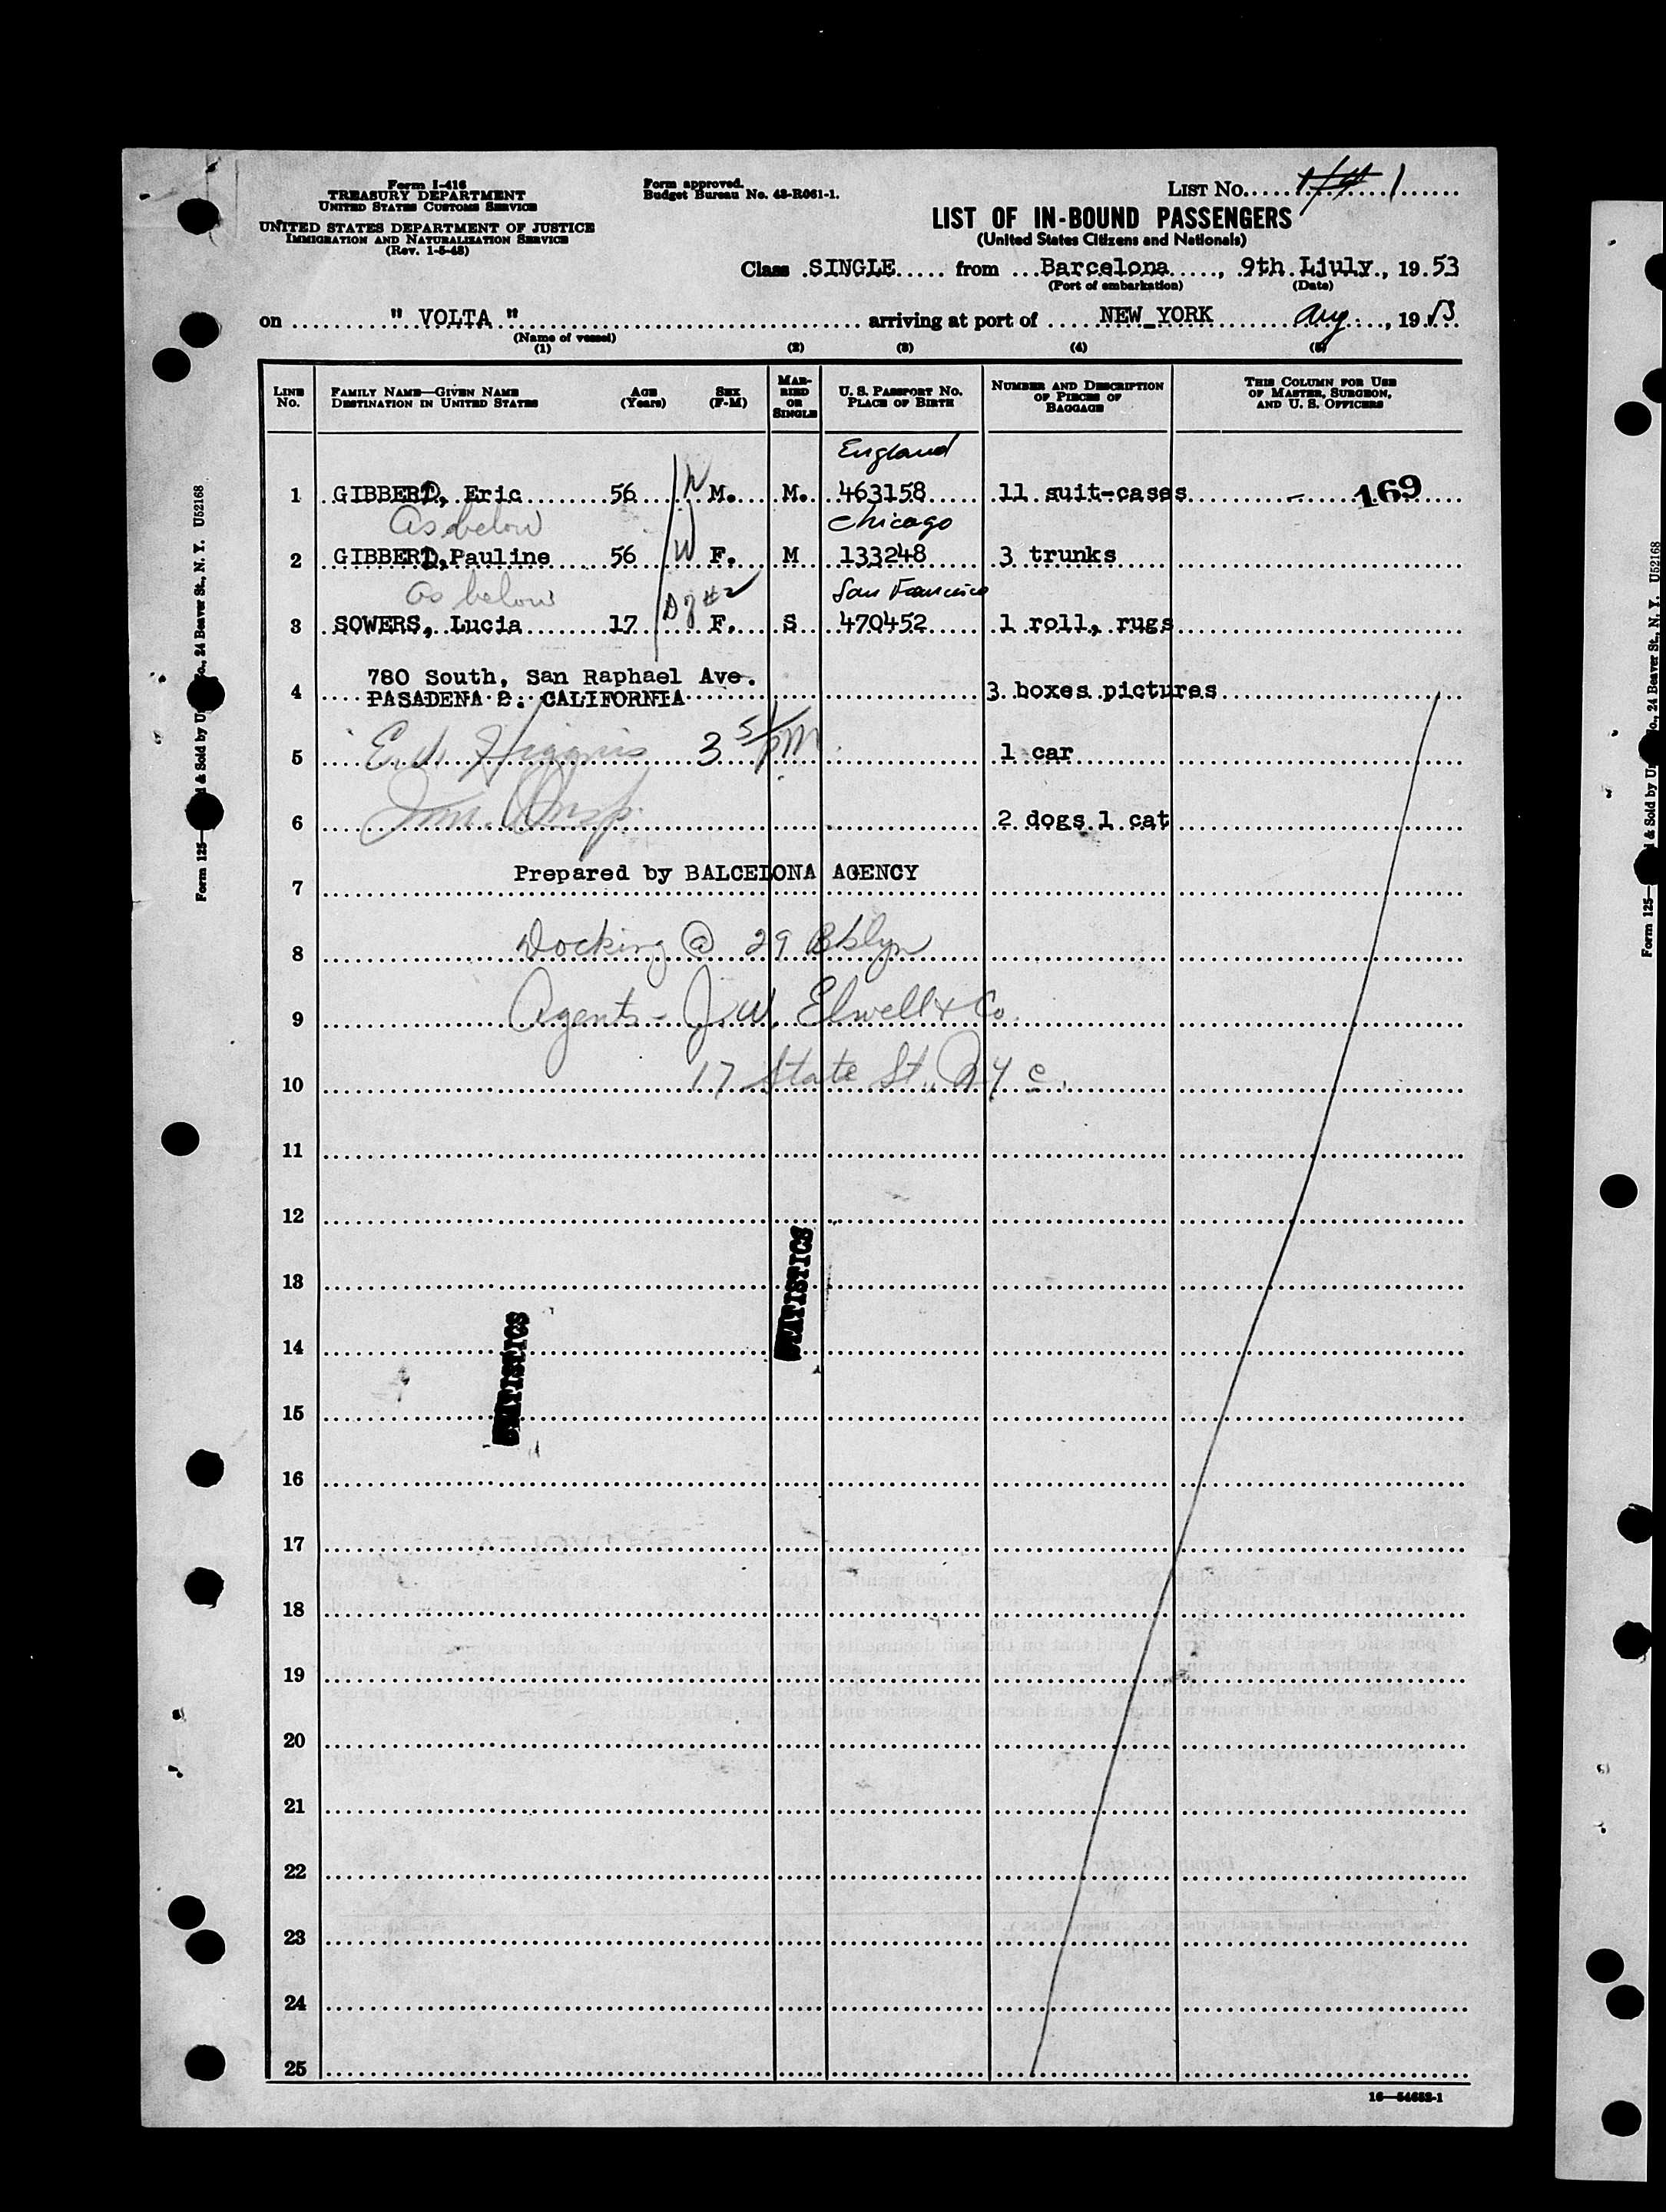 Form I-416
TREASURY DEPARTMENT
UNITED STATES CUSTOMS SERVICE
UNITED STATES DEPARTMENT OF JUSTICE
IMMIGRATION AND NATURALIZATION SERVICE
(Rev. 1-5-48)
Form approved.
Budget Bureau No. 43-R061-1.
LIST No. 1
LIST OF IN-BOUND PASSENGERS
(United States Citizens and Nationals)
Class SINGLE from Barcelona, 9th Ljuly, 19 53
(Port of embarkation) (Date)
on " VOLTA " arriving at port of NEW YORK Aug., 19 53
(Name of vessel)
(1) (2) (3) (4) (5)
LINE No. FAMILY NAME—GIVEN NAME DESTINATION IN UNITED STATES AGE (Years) SEX (F-M) MARRIED OR SINGLE U. S. PASSPORT No. PLACE OF BIRTH NUMBER AND DESCRIPTION OF PIECES OF BAGGAGE THIS COLUMN FOR USE OF MASTER, SURGEON, AND U. S. OFFICERS
England
1 GIBBERD, Eric 56 M. M. 463158 11 suit-cases 169
As below Chicago
2 GIBBERD, Pauline 56 F. M 133248 3 trunks
as below San Francisco
3 SOWERS, Lucia 17 F. S 470452 1 roll, rugs
780 South, San Raphael Ave.
4 PASADENA 2: CALIFORNIA 3 boxes pictures
5 Higgins 1 car
6 2 dogs 1 cat
Prepared by BALCELONA AGENCY
7
Docking @ 29 Bklyn
8
Agents - J.W. Elwell & Co.
9
17 State St., NYC.
10
11
12
STATISTICS
13
STATISTICS
14
15
16
17
18
19
20
21
22
23
24
25
16—54652-1
Form 125—
d & Sold by U
Co., 24 Beaver St., N. Y. U52168
Form 125—
d & Sold by U
Co., 24 Beaver St., N. Y. U52168